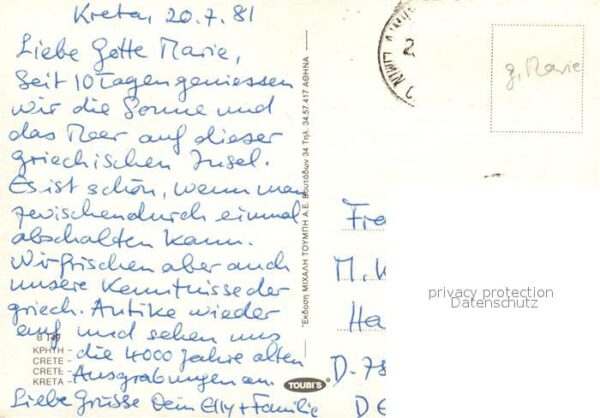 Kreta, 20.7.81
Liebe Gotte Marie,
Seit 10 Tagen geniessen
wir die Sonne und
das Meer auf dieser
griechischen Insel.
Es ist schön, wenn man
zwischendurch einmal
abschalten kann.
Wir frischen aber auch
unsere Kenntnisse der
griech. Antike wieder
auf und sehen uns
die 4000 Jahre alten
Ausgrabungen an.
Liebe Grüsse Dein Elly + Familie
ΚΡΗΤΗ
CRETE
CRETE
KRETA
Έκδοση ΜΙΧΑΛΗ ΤΟΥΜΠΗ Α.Ε. Βουτάδων 34 Τηλ. 34.57.417 ΑΘΗΝΑ
TOUBI'S
g. Marie
Fra
M. K
Ha
D-78
DE
privacy protection
Datenschutz